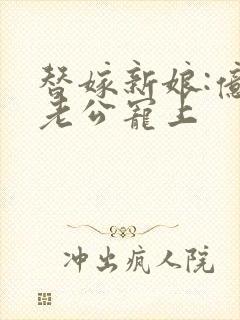 替嫁新娘:億
老公寵上
冲出疯人院